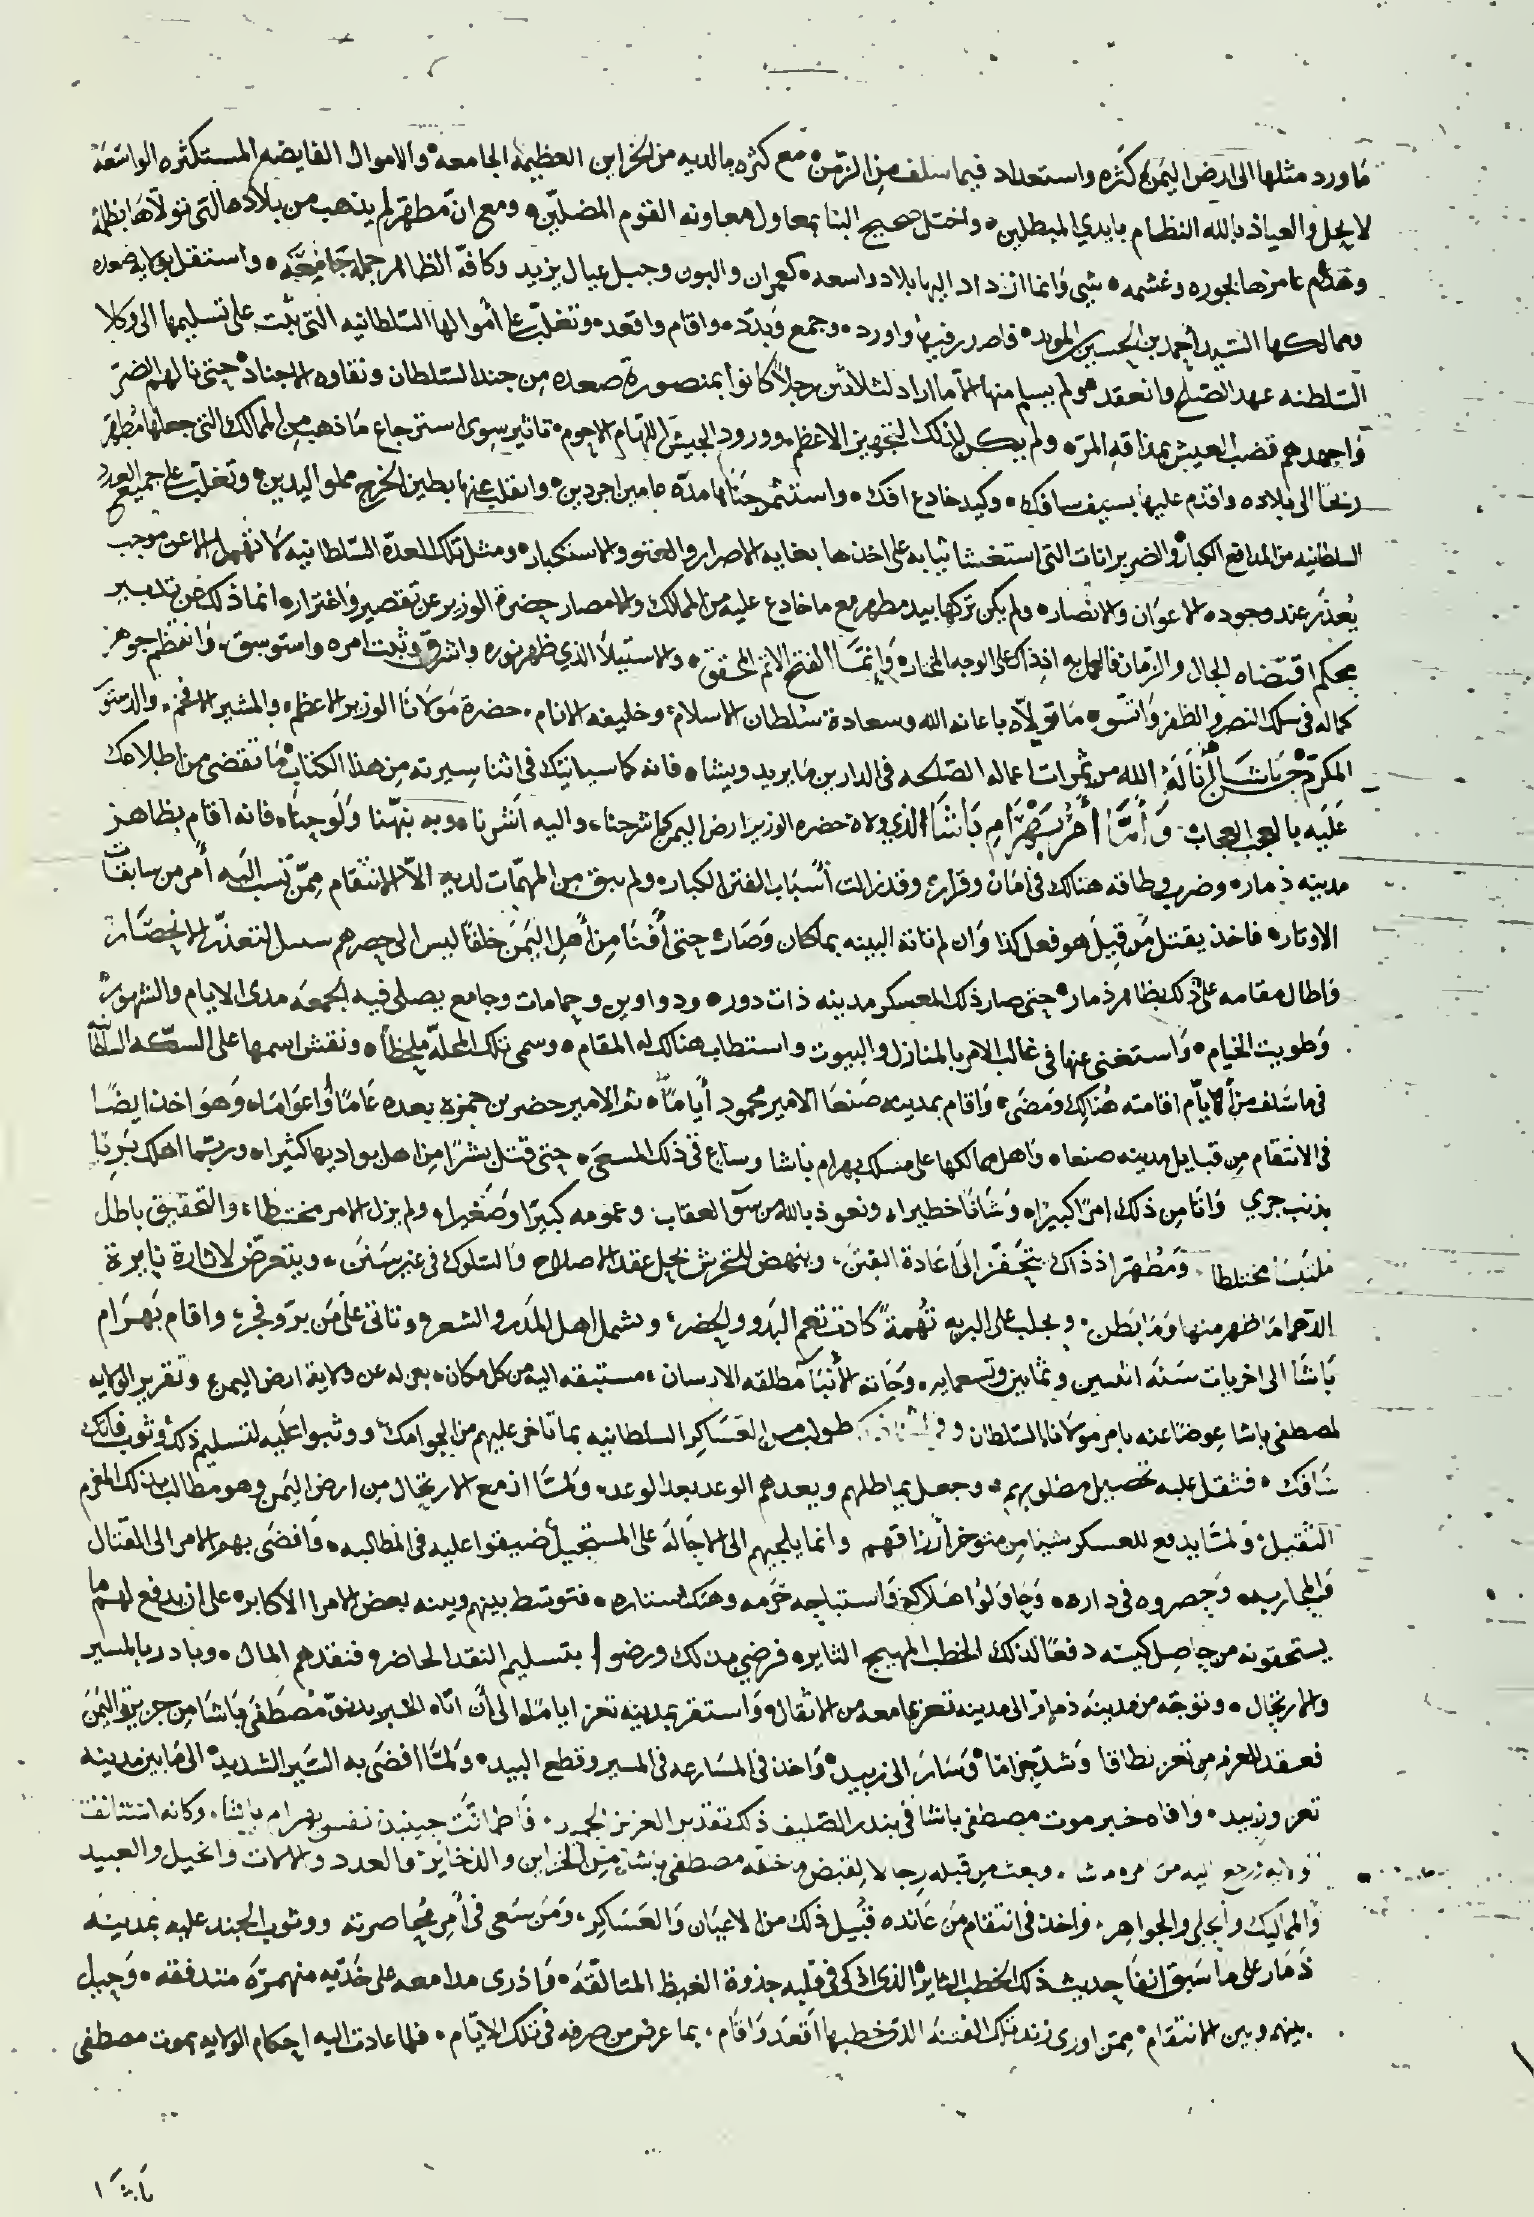 ما ورد مثلها الى ارض اليمن كثره واستعداد فيما سلف من الزمن مع كثره ما لديه من الخزاين العظيمه الجامعه والاموال الفايضه المستكثره الواسعه
لانحل والعياذ بالله النظام بايدي المبطلين واختل صحيح البنا بمعاول معاونه القوم المضلين ومع ان مطهر لم يذهب من بلادها التي تولاها بظلمه
وهدم عامرها بجوره وغشمه شي وانما ازداد اليها بلاد واسعه كعمران والبون وجبل عيال يزيد وكافة الظاهر جملة جامعه واستقل بولايه صعده
وممالكها السيد احمد بن الحسين المويد فاصدر فيها واورد وجمع وبدد واقام واقعد وتغلب على أموالها السلطانيه التي بت على تسليمها الى وكلا
السلطنه عهد الصلح وانعقد ولم يسلم منها الا ما اراد لثلاثين رجلا كانوا بمنصورة صعده من جند السلطان ونقاوه الاجناد حتى نالهم الضر
واجهدهم قضب العيش بمذاقه المره ولم يكن لذلك التجهيز الاعظم وورود الجيش اللهام الاجوم تاثير سوى استرجاع ما ذهب من الممالك التي جعلها مطهر
ربحا الى بلاده واقدم عليها بسيف سافك وكيد خادع افك واستثمر جناها مدة عامين اجردين وانقلب عنها بطين الخرج مملو اليدين وتغلب على جميع العدد
السلطانيه من المدافع الكبار والضربزانات التي استغشا ثيابه على اخذها بغايه الاصرار والعتو والاستكبار ومثل تلك العدة السلطانيه لا تهمل الا عن موجب
يعذر عند وجوده الاعوان والانصار ولم يكن تركها بيد مطهر مع ما خادع عليه من الممالك والامصار حضرة الوزير عن تقصير واغتراره انما ذلك عن تدبير
محكم اقتضاه الحال والزمان فالعمل به اذ ذاك على الوجه المختار وانما الفتح الاتم المحقق والاستيلا الذي ظهر نوره واشرق وثبت امره واستوسق وانتظم جوهر
كماله في سلك النصر والظفر واتسق ما تولاه باعانه الله وسعادة سلطان الاسلام وخليفه الانام حضرة مولانا الوزير الاعظم والمشير الافخم والدستور
المكرم حسن باشا اناله الله من ثمرات اعماله الصالحه في الدارين ما يريد ويشا فانه كما سياتيك في اثنا سيرته من هذا الكتاب ما تقضي من اطلاعك
عليه بالعجب العجاب وأما أمر بهرام باشا الذي ولاه حضره الوزير ارض اليمن كما شرحنا واليه اشرنا وبه نبهنا ولوحنا فانه اقام بظاهر
مدينه ذمار وضرب وطاقه هنالك في امان وقرار وقد زالت أسباب الفتن الكبار ولم يبق من المهمات لديه الا الانتقام ممن نسب اليه أمر من سابقات
الاوتار فاخذ يقتل من قيل هو فعل كذا وان لم تاته البينه بما كان وصار حتى أفنا من أهل اليمن خلقا ليس الى حصرهم سبيل لتعذر الانحصار
واطال مقامه على ذلك بظاهر ذمار حتى صار ذلك المعسكر مدينه ذات دور ودواوين وحمامات وجامع يصلى فيه الجمعه مدى الايام والشهور
وطويت الخيام واستغنى عنها في غالب الامر بالمنازل والبيوت واستطاب هنالك له المقام وسمى تلك المحله ملحظا ونقش اسمها على السكه السلطانيه
في ما سلف من أيام اقامته هنالك ومضى واقام بمدينه صنعا الامير محمود أياما ثم الامير خضر بن حمزه بعده عاما واعواما وهو اخذ ايضا
في الانتقام من قبايل مدينه صنعا واهل ممالكها على مسلك بهرام باشا وساع في ذلك المسعى حتى قتل بشرا من اهل بواديها كثيرا وربما اهلك بريا
بذنب جري واتا من ذلك امرا كبيرا وشانا خطيرا ونعوذ بالله من سو العقاب وعمومه كبيرا وصغيرا ولم يزل الامر مختبطا والتحقيق باطل
ملتبسا مختلطا ومطهرا اذ ذاك يتحفز الى اعادة الفتن وينهض للتحرش بحل عقد الاصلاح والسلوك في غير سنن ويتعرض لاثارة نايرة
الدهما ما ظهر منها وما بطن ويجلب على البريه تهمة كادت تعم البدو والحضر ويشمل اهل المدر والشعر وتاتي على من بر وفجر واقام بهرام
باشا الى اخريات سنه اثنين وثمانين وتسعمايه وجاته الأنبا مطلقه الارسان مستبقه اليه من كل مكان بعزله عن ولاية ارض اليمن وتقرير الولايه
لمصطفى باشا عوضا عنه بامر مولانا السلطان وفي طولب من العساكر السلطانيه بما تاخر عليهم من الجوامك ووثبوا عليه لتسليم ذلك وثوب فاتك
سافك فثقل عليه تحصيل مطلوبهم وجعل يماطلهم ويعدهم الوعد بعد الوعد ولما ازمع الارتحال من ارض اليمن وهو مطالب بذلك المغرم
الثقيل ولما يدفع للعسكر شيا من متوخر أرزاقهم وانما يلجيهم الى الاحاله على المستحيل ضيقوا عليه في المطالبه وافضى بهم الامر الى القتال
والمحاربه وحصروه في داره وحاولوا اهلاكه واستباحه حرمه وهتك استاره فتوسط بينهم وبينه بعض الامرا الاكابر على ان يدفع لهم ما
يستحقونه من حاصل كيسه دفعا لذلك الخطب المهيج الثاير فرضي بذلك ورضوا بتسليم النقد الحاضر فنقدهم المال وبادر بالمسير
والارتحال وتوجه من مدينه ذمار الى مدينه تعز بما معه من الاثقال واستقر بمدينه تعز اياما الى أن اتاه الخبر بدنو مصطفى باشا من جزيرة اليمن
فعقد للعزم من تعز نطاقا وشد حزاما وسار الى زبيد واخذ في المسارعه في المسير وقطع البيد ولما افضى به السير الشديد الى ما بين مدينه
تعز وزبيد وافاه خبر موت مصطفى باشا في بندر الصليف ذلك تقدير العزيز الحميد فاطمانت حينيذ نفس بهرام باشا وكانه استانفت
ولايه ورجع اليه من امره ما شا وبعث من قبله رجالا لقبض ما خلفه مصطفى باشا من الخزاين والذخاير والعدد والالات والخيل والعبيد
والمماليك والحلي والجواهر واخذ في انتقام من عانده قبيل ذلك من الاعيان والعساكر ومن سعى في أمر محاصرته ووثوب الجند عليه بمدينه
ذمار على ما سبق انفا حديث ذلك الخطب الثاير الذي اذكى في قلبه جذوة الغيظ المتالقه واذرى مدامعه على خديه منهمرة متدفقه وحيل
بينه وبين الانتقام ممن اورى زند تلك الفتنه الذي خطبها اقعد واقام بما عرض من صرفه في تلك الايام فلما عادت اليه احكام الولايه بموت مصطفى
باشا